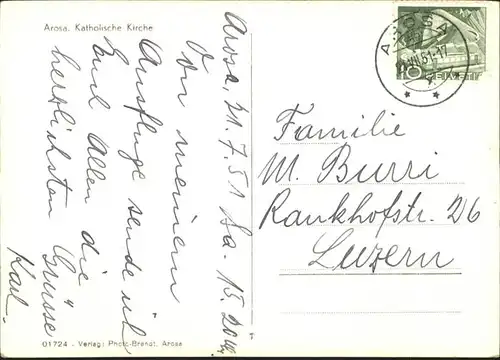 Arosa. Katholische Kirche
Arosa, 21.7.51 Sa. 15.20
Von meinem
Ausfluge sende ich
Euch Allen die
herzlichsten Grüsse
Karl.
01724 - Verlag: Photo-Brandt, Arosa
AROSA
VII.51-17
10 HELVETIA
Familie
M. Burri
Rankhofstr. 26
Luzern